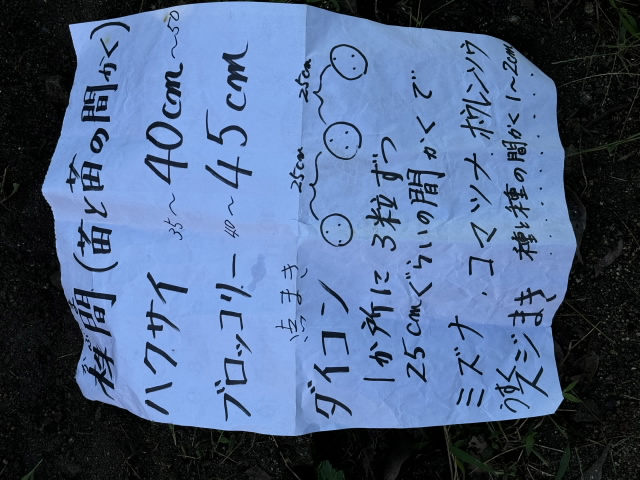 株間(苗と苗の間かく)
ハクサイ 35〜40cm〜50
ブロッコリー 40〜45cm
点まき 25cm 25cm
ダイコン
1か所に3粒ずつ
25cmぐらいの間かくで
ミズナ・コマツナ・ホウレンソウ
うすくスジまき 種と種の間かく1〜2cm